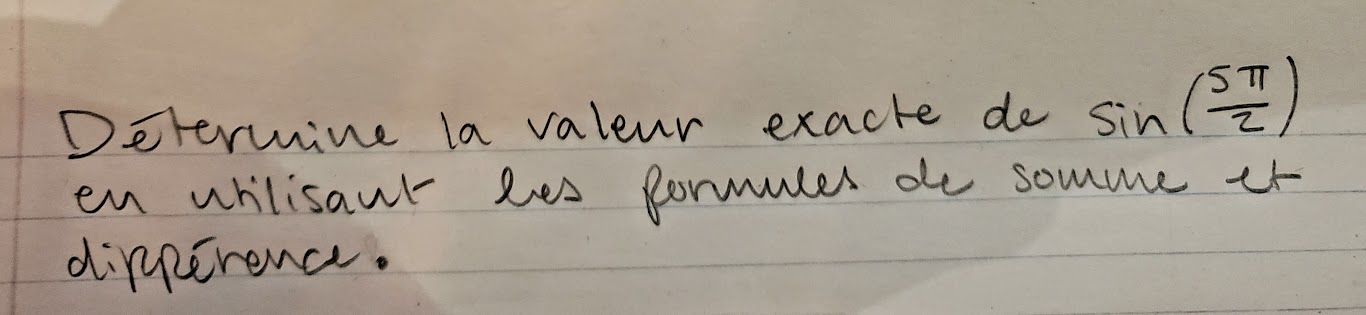 Détermine la valeur exacte de sin(5π/2)
en utilisant les formules de somme et
différence.